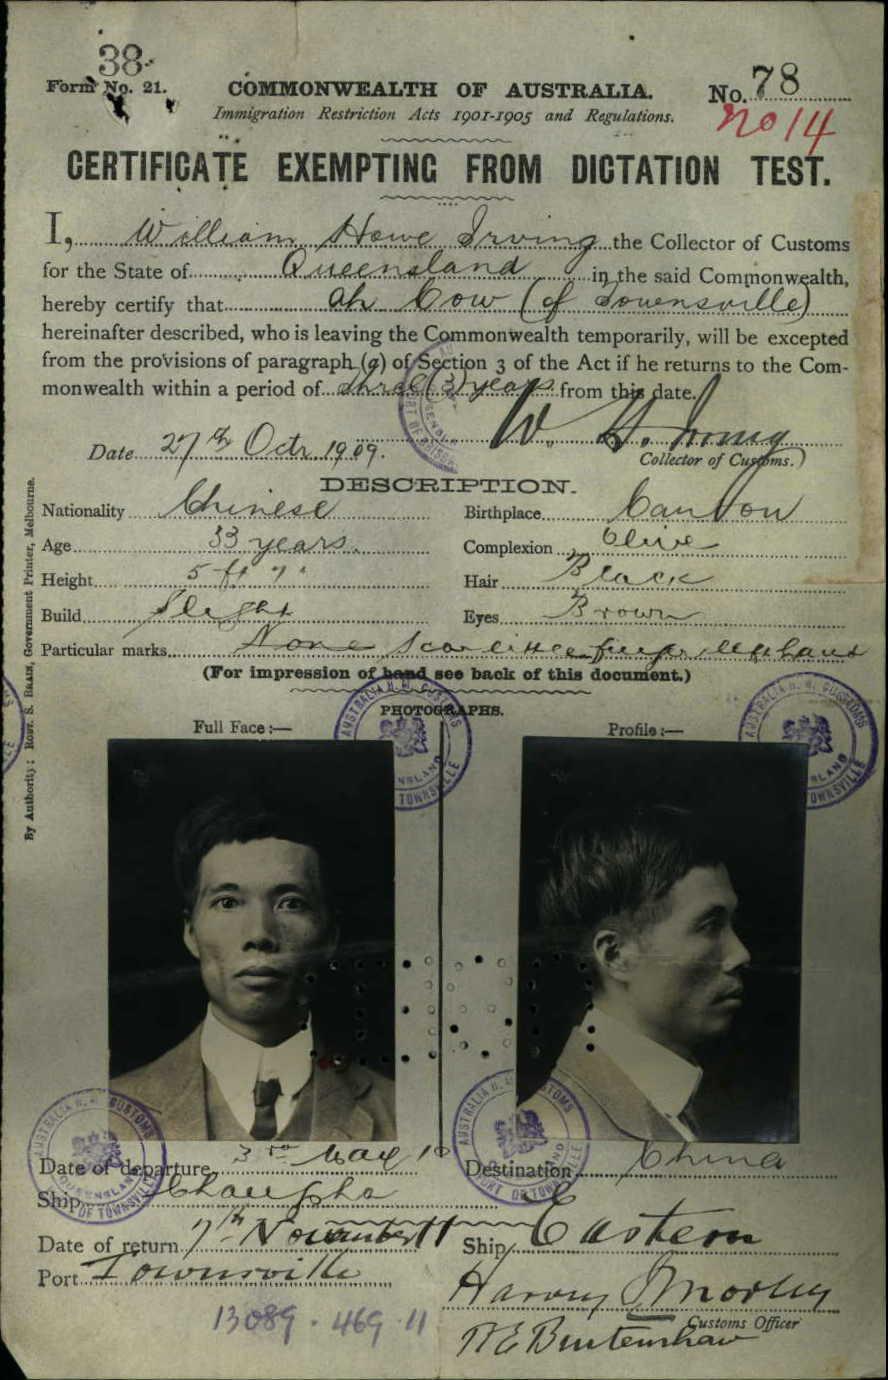 38.
Form No. 21.
COMMONWEALTH OF AUSTRALIA.
No. 78
No 14
Immigration Restriction Acts 1901-1905 and Regulations.
CERTIFICATE EXEMPTING FROM DICTATION TEST.
I, William Howe Irving the Collector of Customs
for the State of Queensland in the said Commonwealth,
hereby certify that Ah Cow (of Townsville)
hereinafter described, who is leaving the Commonwealth temporarily, will be excepted
from the provisions of paragraph (a) of Section 3 of the Act if he returns to the Com-
monwealth within a period of three (3) years from this date.
W. H. Irving
Date 27th Octr 1909.
Collector of Customs.
DESCRIPTION.
Nationality Chinese
Birthplace Canton
Age 33 years.
Complexion Olive
Height 5 ft 7"
Hair Black
Build Slight
Eyes Brown
Particular marks None Scar little finger left hand
(For impression of hand see back of this document.)
PHOTOGRAPHS.
Full Face :—
Profile :—
By Authority: Robt. S. Brain, Government Printer, Melbourne.
AUSTRALIA H. M. CUSTOMS
QUEENSLAND
PORT OF TOWNSVILLE
Date of departure 3rd May 10
Destination China
Ship
Date of return 7th November 11
Ship Eastern
Port Townsville
Harvey
Customs Officer
13089 . 469 . 11